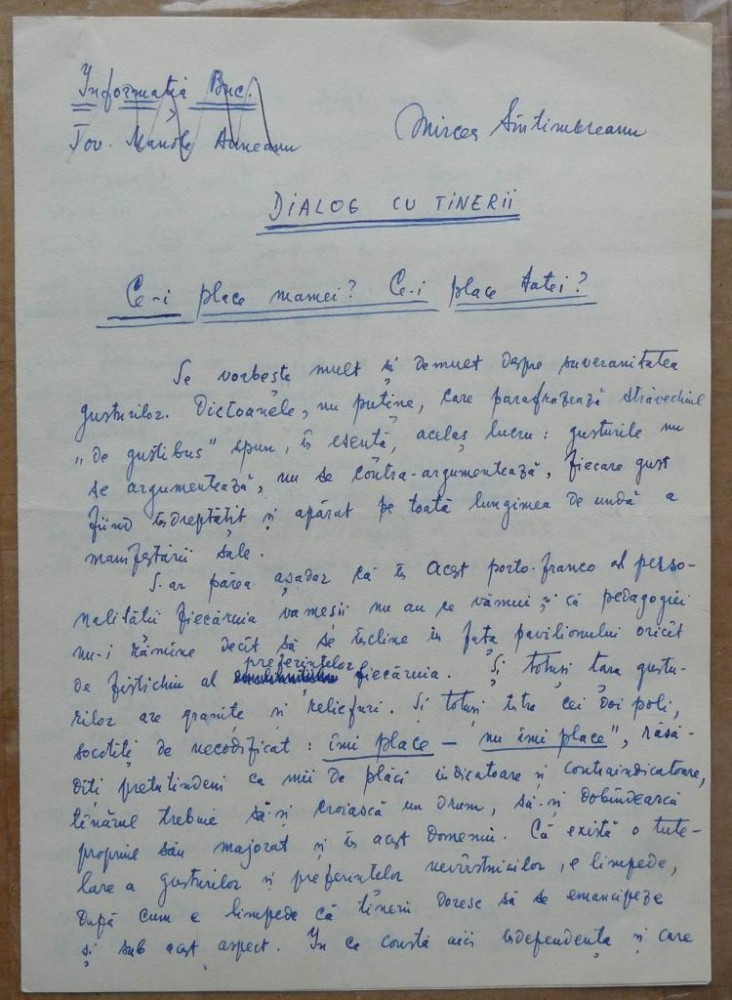 Informația Buc.
Tov. Manole Auneanu
Mircea Sîntimbreanu
DIALOG CU TINERII
Ce-i place mamei? Ce-i place tatei?
Se vorbește mult și demult despre suveranitatea
gusturilor. Dictoanele, nu puține, care parafrazează străvechiul
„De gustibus" spun, în esență, același lucru: gusturile nu
se argumentează, nu se contra-argumentează, fiecare gust
fiind îndreptățit și apărat pe toată lungimea de undă a
manifestării sale.
S-ar părea așadar că în acest porto-franco al perso-
nalității fiecăruia vameșii nu au ce vămui și că pedagogiei
nu-i rămîne decît să se încline în fața pavilionului oricît
de fistichiu al preferințelor fiecăruia. Și totuși țara gustu-
rilor are granițe și reliefuri. Și totuși între cei doi poli,
socotiți de necodificat: îmi place – nu îmi place", răsă-
diți pretutindeni ca mii de plăci indicatoare și contraindicatoare,
tînărul trebuie să-și croiască un drum, să-și dobîndească
propriul său majorat și în acest domeniu. Că există o tute-
lare a gusturilor și preferințelor nevîrstnicilor, e limpede,
după cum e limpede că tinerii doresc să se emancipeze
și sub acest aspect. In ce constă aici independența și care